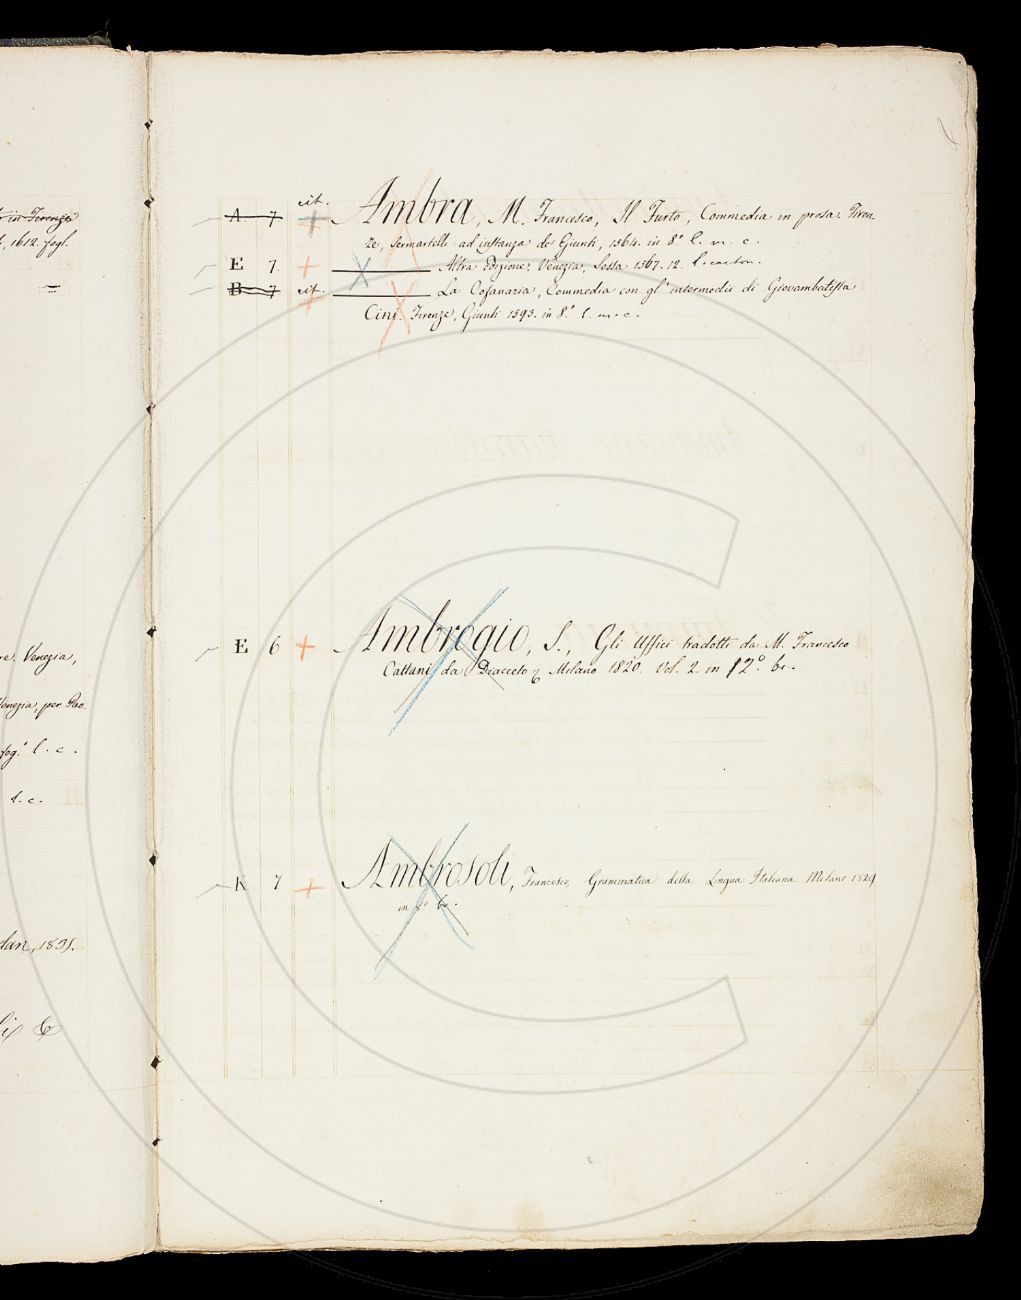 in Firenze
, 1612. fogl.
re. Venezia,
Venezia, per Pao
fog.° l. c.
l. c.
dan, 1831.
A 7 cit. Ambra, M. Francesco, Il Furto, Commedia in prosa. Firen
ze, Sermartelli ad instanza de Giunti, 1564. in 8° l. m. c.
E 7. Altra Edizione. Venezia, Sessa 1567. 12. l. carton.
B 7 cit. La Cofanaria, Commedia con gl' intermedii di Giovambatista
Cini. Firenze, Giunti 1593. in 8.° l. m. c.
E 6 Ambrogio, S., Gli Uffici tradotti da M. Francesco
Cattani da Diacceto Milano 1820. Vol. 2. in 12° br.
K 7 Ambrosoli, Francesco, Grammatica della Lingua Italiana Milano 1829
in 8° br.
C